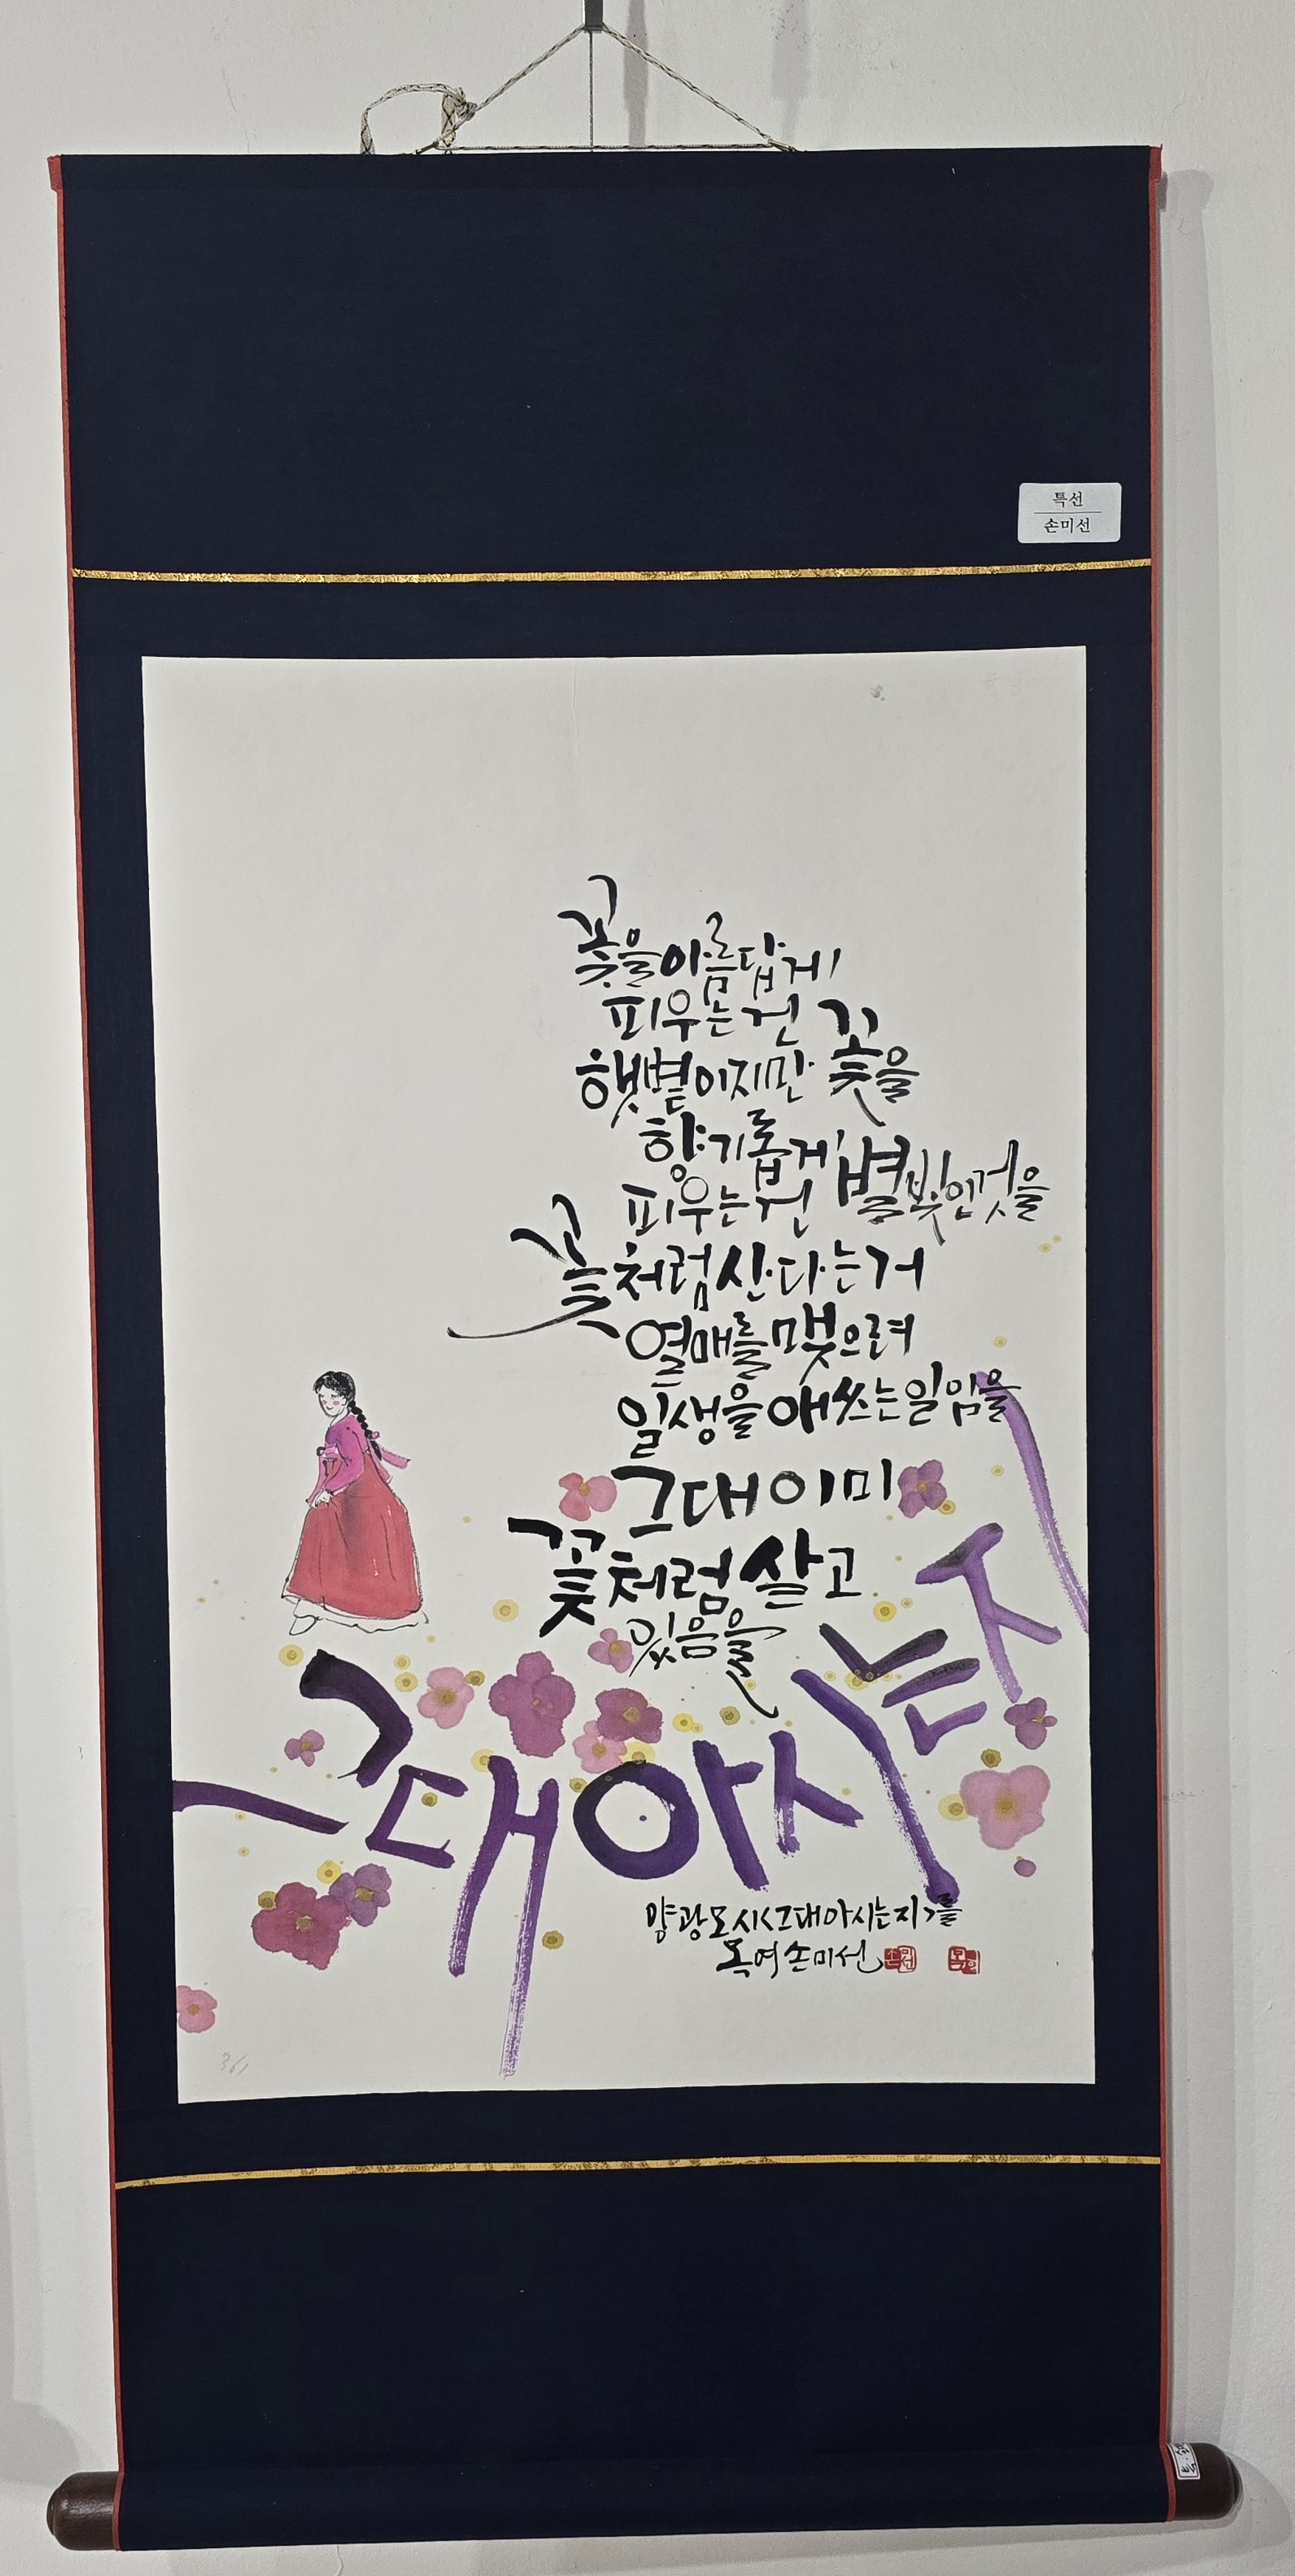 특선
손미선
꽃을 아름답게
피우는 건
햇볕이지만 꽃을
향기롭게
피우는 건 별빛인 것을
꽃처럼 산다는 거
열매를 맺으려
일생을 애쓰는 일임을
그대 이미
꽃처럼 살고
있음을
그대 아시는지
양광모 시 <그대 아시는지>를
목여 손미선
361